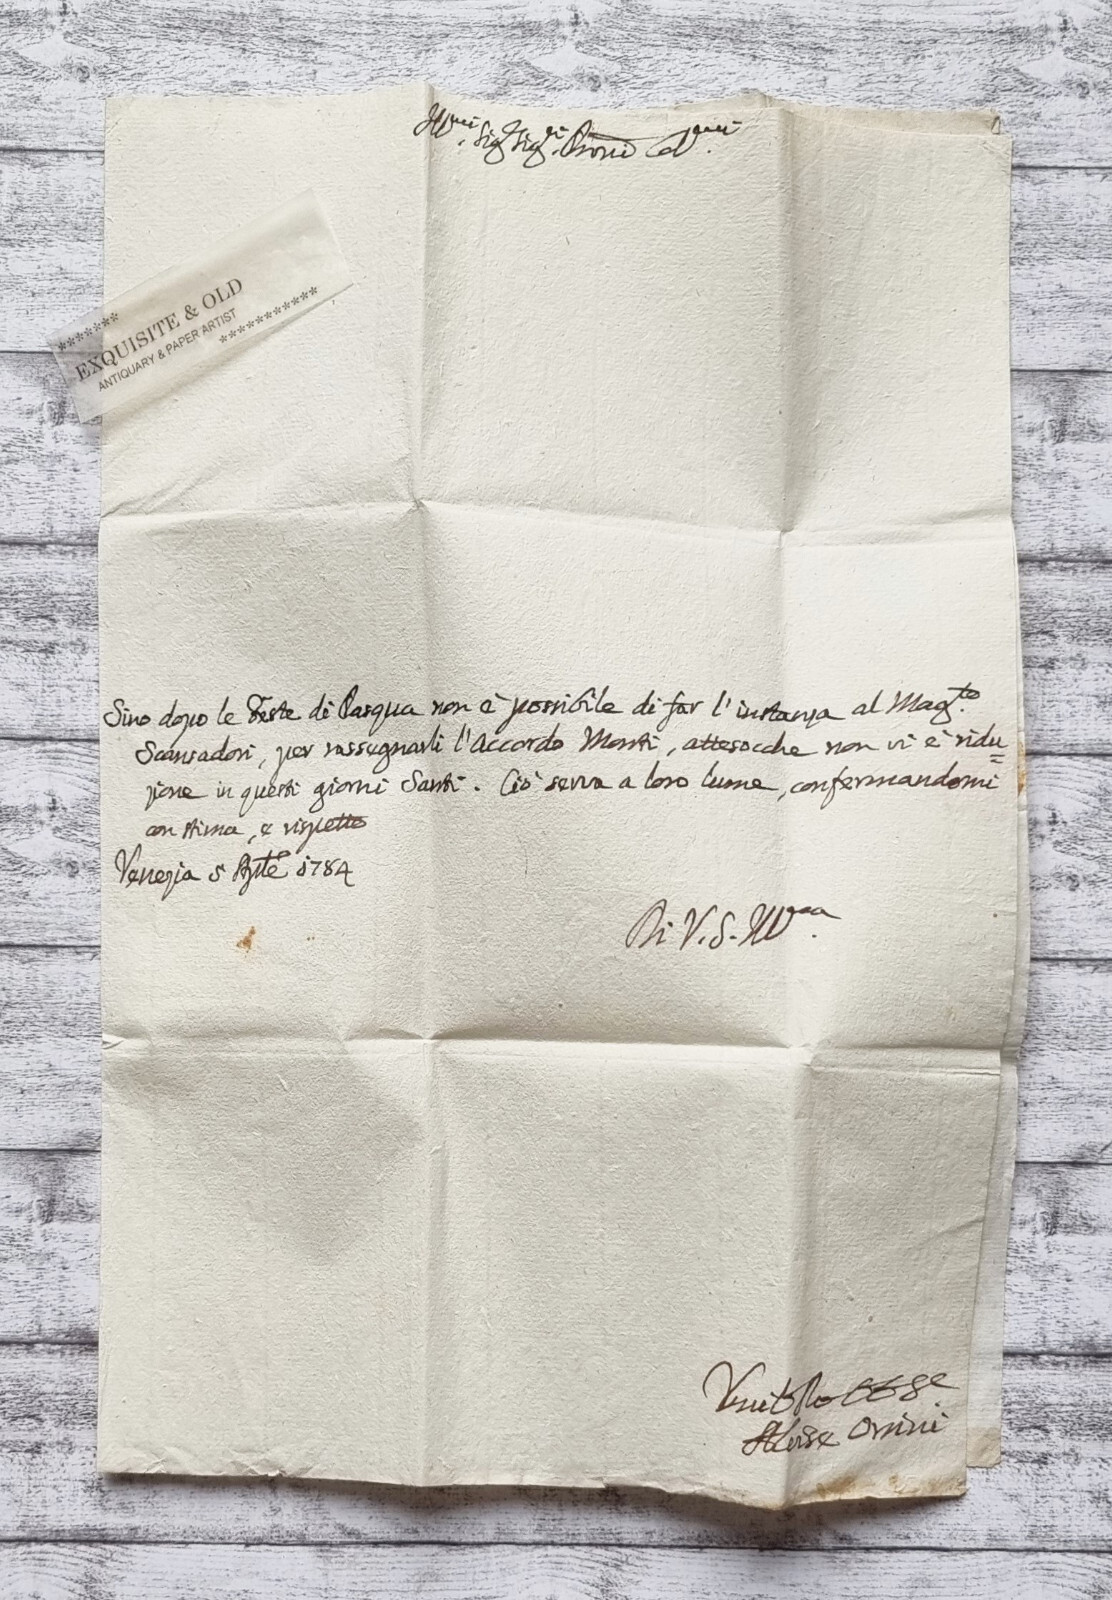 Ill.mi Sig.i Sig.ri Proni Col.mi
EXQUISITE & OLD
ANTIQUARY & PAPER ARTIST
Sino dopo le Feste di Pasqua non è possibile di far l'instanza al Mag.to
Scansadori, per rassegnarli l'Accordo Monti, attesocche non vi è ridu
zione in questi giorni Santi. Ciò serva a loro lume, confermandomi
con stima, e rispetto
Venezia 5 Aprile 1784
Di V.S. Ill.ma
Alvise Orsini